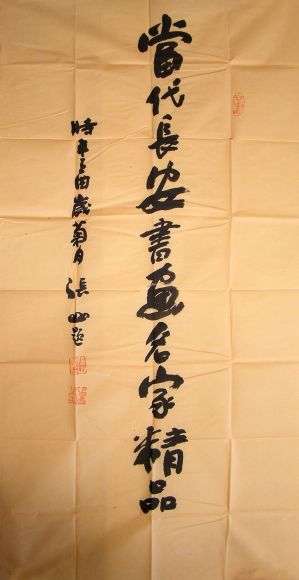 當代長安書畫名家精品
時在乙酉歲菊月 張山題